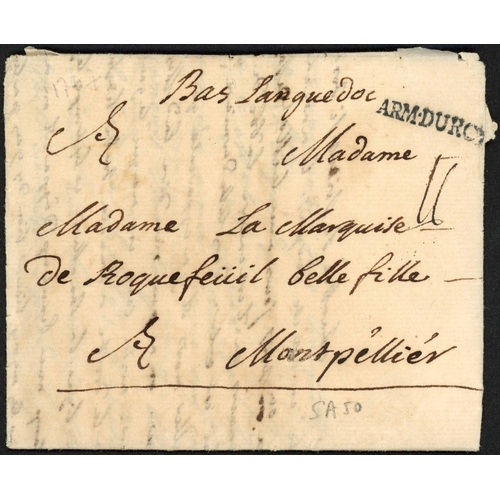 Bas Languedoc
ARM·DURC
A Madame
Madame La Marquise
de Roquefeüil belle fille
A Montpélliér
SA50